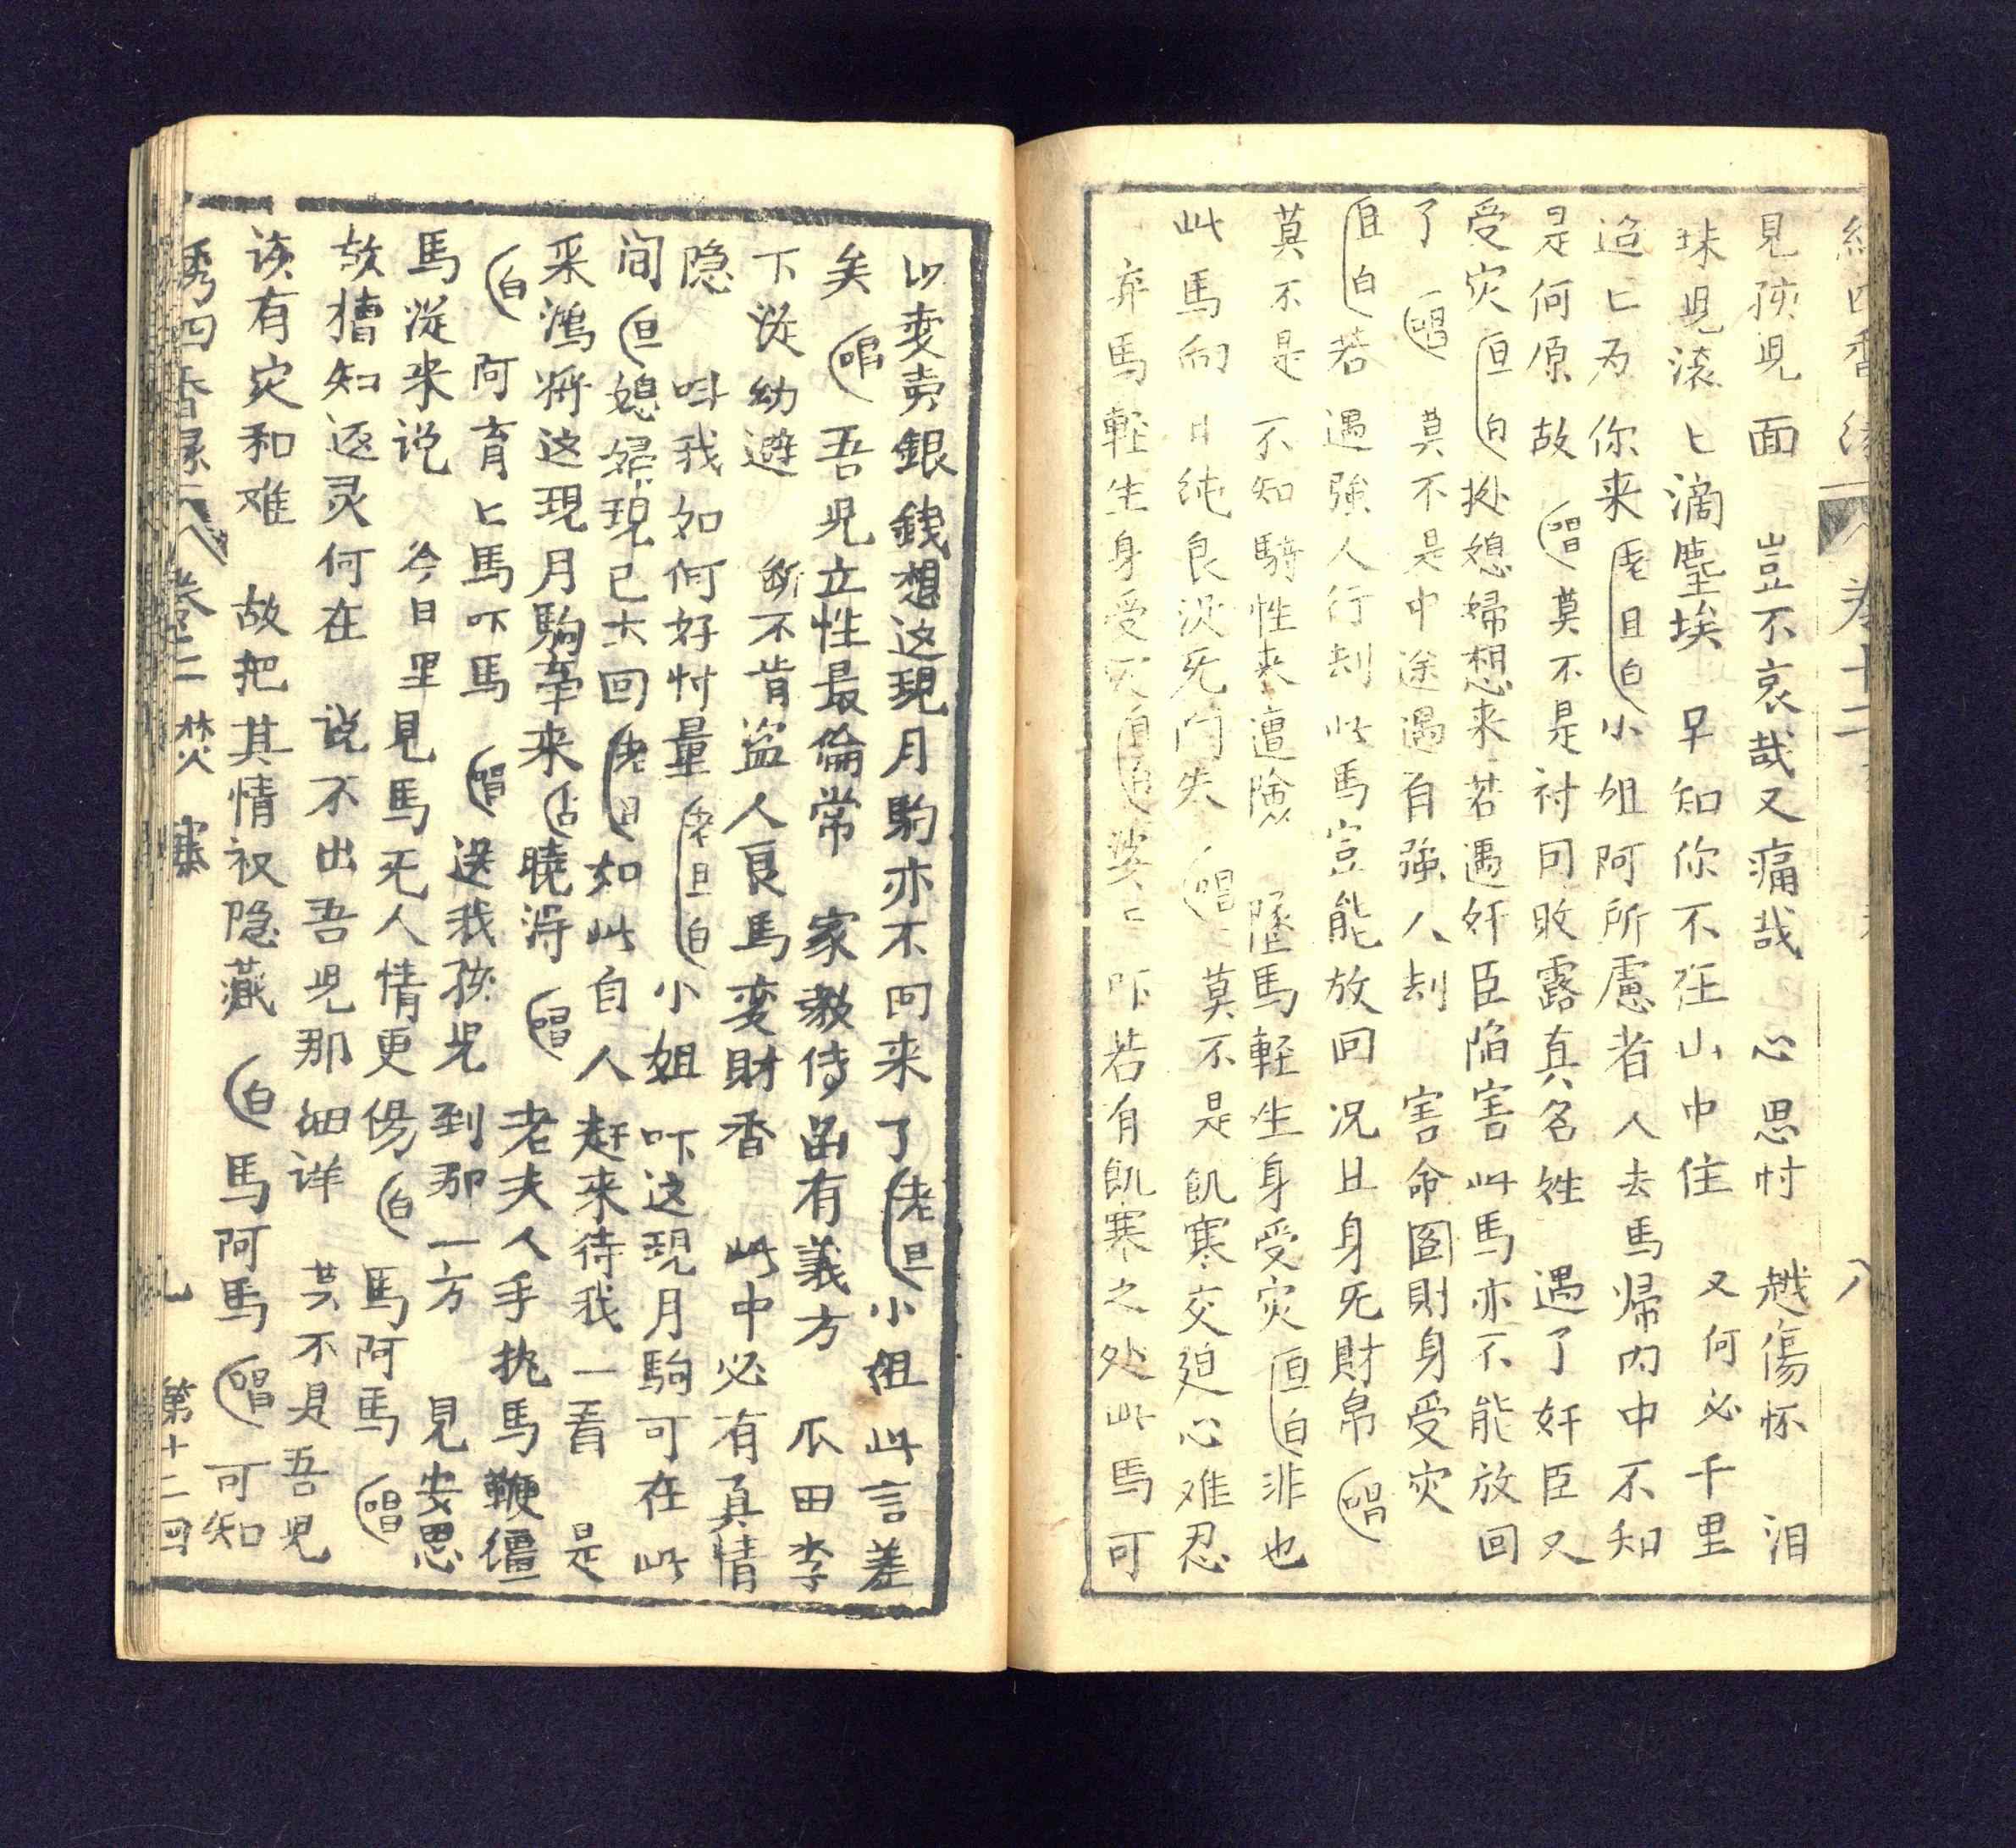 見孩児面 豈不哀哉又痛哉 心思忖 越傷怀 泪
珠児滚匕滴塵埃 早知你不在山中住 又何必千里
迢匕为你来 老旦白 小姐阿所慮者人去馬帰内中不知
是何原故 唱 莫不是村同敗露真名姓 遇了奸臣又
受灾 旦白 媳婦想来若遇奸臣陷害此馬亦不能放回
了 唱 莫不是中途遇有強人刦 害命图財身受灾
旦白 若遇強人行刦此馬豈能放回况且身死財帛 唱
莫不是 不知騎性来遭険 墜馬軽生身受灾 旦白 非也
此馬向日纯良没死门失 唱 莫不是飢寒交廹心难忍
弃馬軽生身受灾 旦白 婆匕吓若有飢寒之处此馬可
以变卖銀錢想这現月駒亦不回来了 老旦 小姐此言差
矣 唱 吾児立性最倫常 家教侍函有義方 瓜田李
下從幼避 断不肯盗人良馬变財香 此中必有真情
隐 呌我如何好忖量 老旦白 小姐吓这現月駒可在此
间 旦 媳婦現已大回 老旦 如此自人赶来待我一看 是
采鴻将这現月駒牽来 占 曉淂 唱 老夫人手执馬鞭僵
白 阿育匕馬吓馬 唱 送我孩児到那一方 見安思
馬從来说 今日里見馬死人情更傷 白 馬阿馬 唱
故猶知返灵何在 说不出吾児那细详 莫不是吾児
该有灾和难 故把其情权隐藏 白 馬阿馬 唱 可知
绣四香缘 卷二 焚寨 九 第十二回